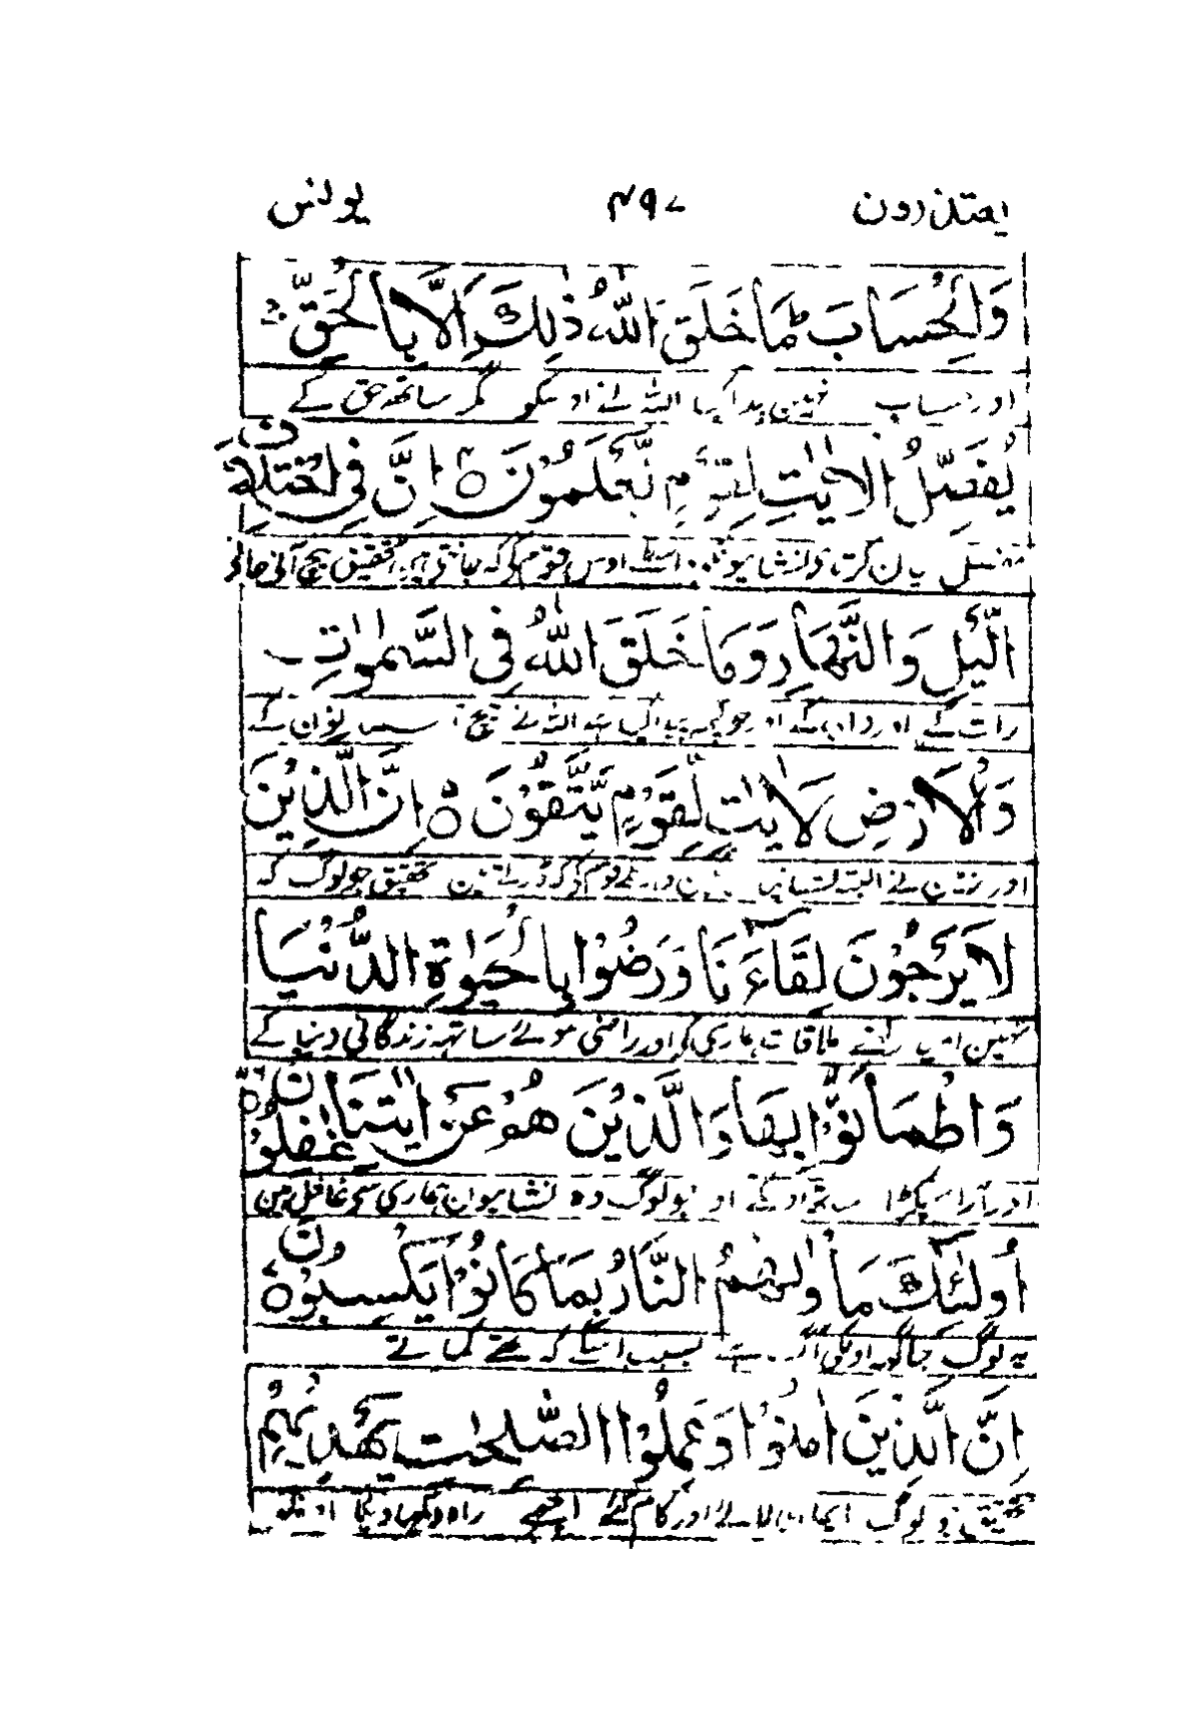 یعتذرون ۴۹۷ یونس
وَالْحِسَابَ ؕ مَا خَلَقَ اللّٰهُ ذٰلِكَ اِلَّا بِالْحَقِّ ۚ
اور حساب نہین پیدا کیا اللہ نے اوسکو مگر ساتھ حق کے
یُفَصِّلُ الْاٰیٰتِ لِقَوْمٍ یَّعْلَمُوْنَ ۝ اِنَّ فِی اخْتِلَافِ
بیان کرتا نشانیونکو واسطے اوس قوم کے کہ جانتی ہی تحقیق بیچ آنی جانی
الَّیْلِ وَالنَّهَارِ وَمَا خَلَقَ اللّٰهُ فِی السَّمٰوٰتِ
رات کے اور دن کے اور جو کچھ پیدا کیا ہے اللہ نے بیچ آسمانون کے
وَالْاَرْضِ لَاٰیٰتٍ لِّقَوْمٍ یَّتَّقُوْنَ ۝ اِنَّ الَّذِیْنَ
اور زمین کے البتہ نشانیان ہین واسطے قوم کے کہ ڈرتے ہین تحقیق جو لوگ کہ
لَا یَرْجُوْنَ لِقَآءَنَا وَرَضُوْا بِالْحَیٰوةِ الدُّنْیَا
نہین امید رکھتے ملاقات ہماری کی اور راضی ہوئے ساتھ زندگانی دنیا کے
وَاطْمَاَنُّوْا بِهَا وَالَّذِیْنَ هُمْ عَنْ اٰیٰتِنَا غٰفِلُوْنَ ۝
اور آرام پکڑا ساتھ اوسکے اور جو لوگ وہ نشانیون ہماری سے غافل ہین
اُولٰٓئِكَ مَاْوٰىهُمُ النَّارُ بِمَا كَانُوْا یَكْسِبُوْنَ ۝
یہ لوگ جاگہ اونکی آگ ہے بسبب اسکے کہ تھے کماتے
اِنَّ الَّذِیْنَ اٰمَنُوْا وَعَمِلُوا الصّٰلِحٰتِ یَهْدِیْهِمْ
تحقیق جو لوگ ایمان لائے اور کام کئے اچھے راہ دکھاویگا اونکو